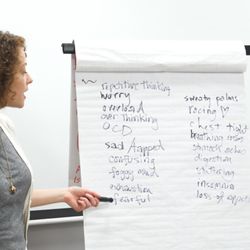 repetitive thinking
worry
overload
over thinking
OCD
sad trapped
confusing
foggy head
exhaustion
fearful
sweaty palms
racing
chest tight
breathing
stomach aches
digestion
insomnia
loss of